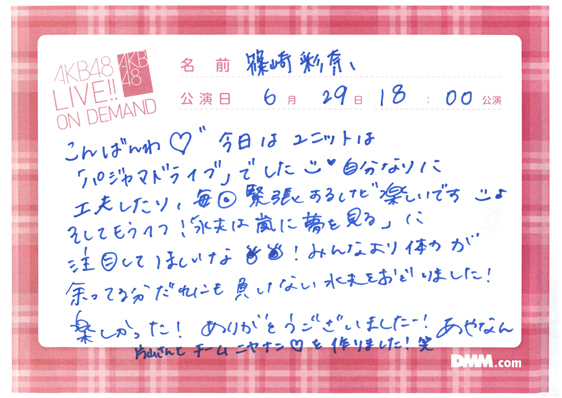 AKB48
LIVE!!
ON DEMAND
AKB
48
名前 篠崎彩奈
公演日 6月 29日 18:00公演
こんばんわ♡" 今日はユニットは
「パジャマドライブ」でした 自分なりに
工夫したり、毎回緊張とかするけど楽しいです♪
そしてもう1つ!「水夫は嵐に夢を見る」に
注目してほしいな!みんなより体力が
余ってる分だれにも負けない水夫をおどりました!
楽しかった! ありがとうございましたー! あやなん
片山さんと チームニヤナン♡を作りました!笑
DMM.com